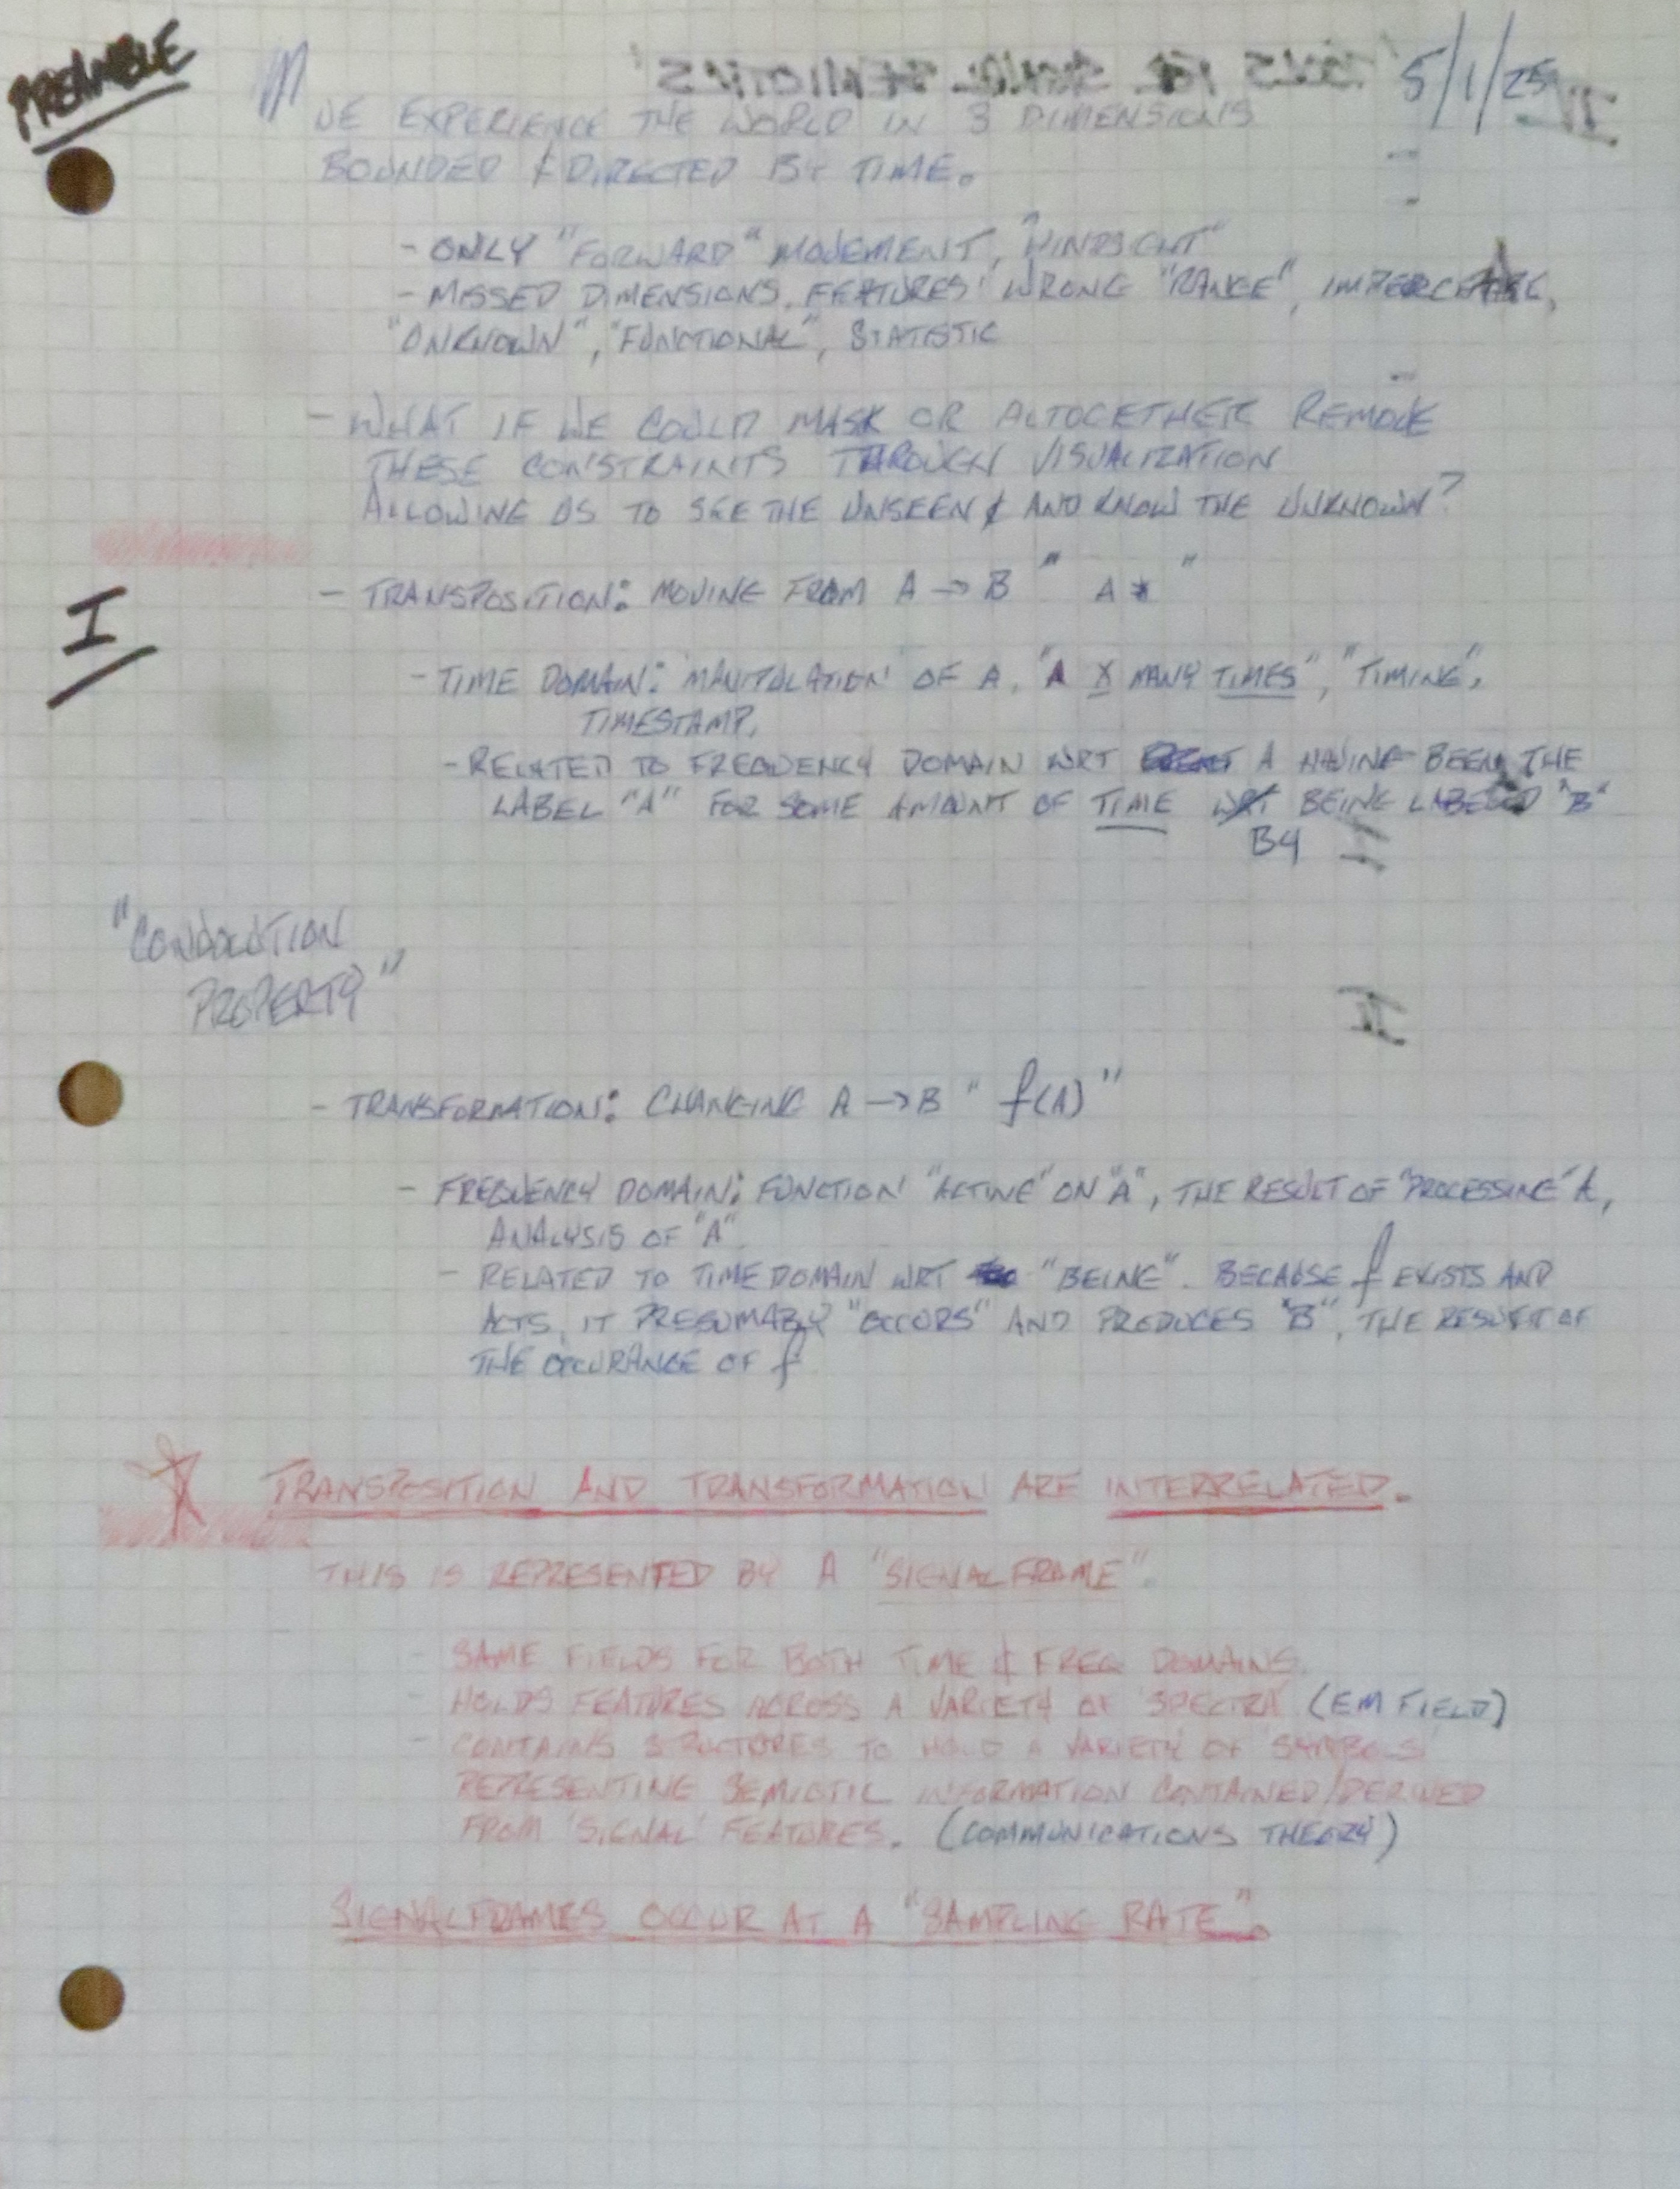 PREAMBLE
5/1/25
WE EXPERIENCE THE WORLD IN 3 DIMENSIONS
BOUNDED & DIRECTED BY TIME.
- ONLY "FORWARD" MOVEMENT, "HINDSIGHT"
- MISSED DIMENSIONS, FEATURES: WRONG "RANGE",
"UNKNOWN", "FUNCTIONAL", STATISTIC
- WHAT IF WE COULD MASK OR ALTOGETHER REMOVE
THESE CONSTRAINTS THROUGH VISUALIZATION
ALLOWING US TO SEE THE UNSEEN & AND KNOW THE UNKNOWN?
I
- TRANSPOSITION: MOVING FROM A → B " A * "
- TIME DOMAIN: 'MANIPULATION' OF A, "A X MANY TIMES", "TIMING",
TIMESTAMP,
- RELATED TO FREQUENCY DOMAIN WRT A HAVING BEEN THE
LABEL "A" FOR SOME AMOUNT OF TIME WRT BEING LABELED "B"
BY
"CONVOLUTION
PROPERTY"
- TRANSFORMATION: CHANGING A → B " f(A) "
- FREQUENCY DOMAIN: FUNCTION "ACTING" ON "A", THE RESULT OF "PROCESSING" A,
ANALYSIS OF "A".
- RELATED TO TIME DOMAIN WRT "BEING". BECAUSE f EXISTS AND
ACTS, IT PRESUMABLY "OCCURS" AND PRODUCES "B", THE RESULT OF
THE OCCURANCE OF f
TRANSPOSITION AND TRANSFORMATION ARE INTERRELATED.
THIS IS REPRESENTED BY A "SIGNALFRAME".
- SAME FIELDS FOR BOTH TIME & FREQ DOMAINS.
- HOLDS FEATURES ACROSS A VARIETY OF 'SPECTRA' (EM FIELD)
- CONTAINS STRUCTURES TO HOLD A VARIETY OF 'SYMBOLS'
REPRESENTING SEMIOTIC INFORMATION CONTAINED/DERIVED
FROM 'SIGNAL' FEATURES. (COMMUNICATIONS THEORY)
SIGNALFRAMES OCCUR AT A "SAMPLING RATE".